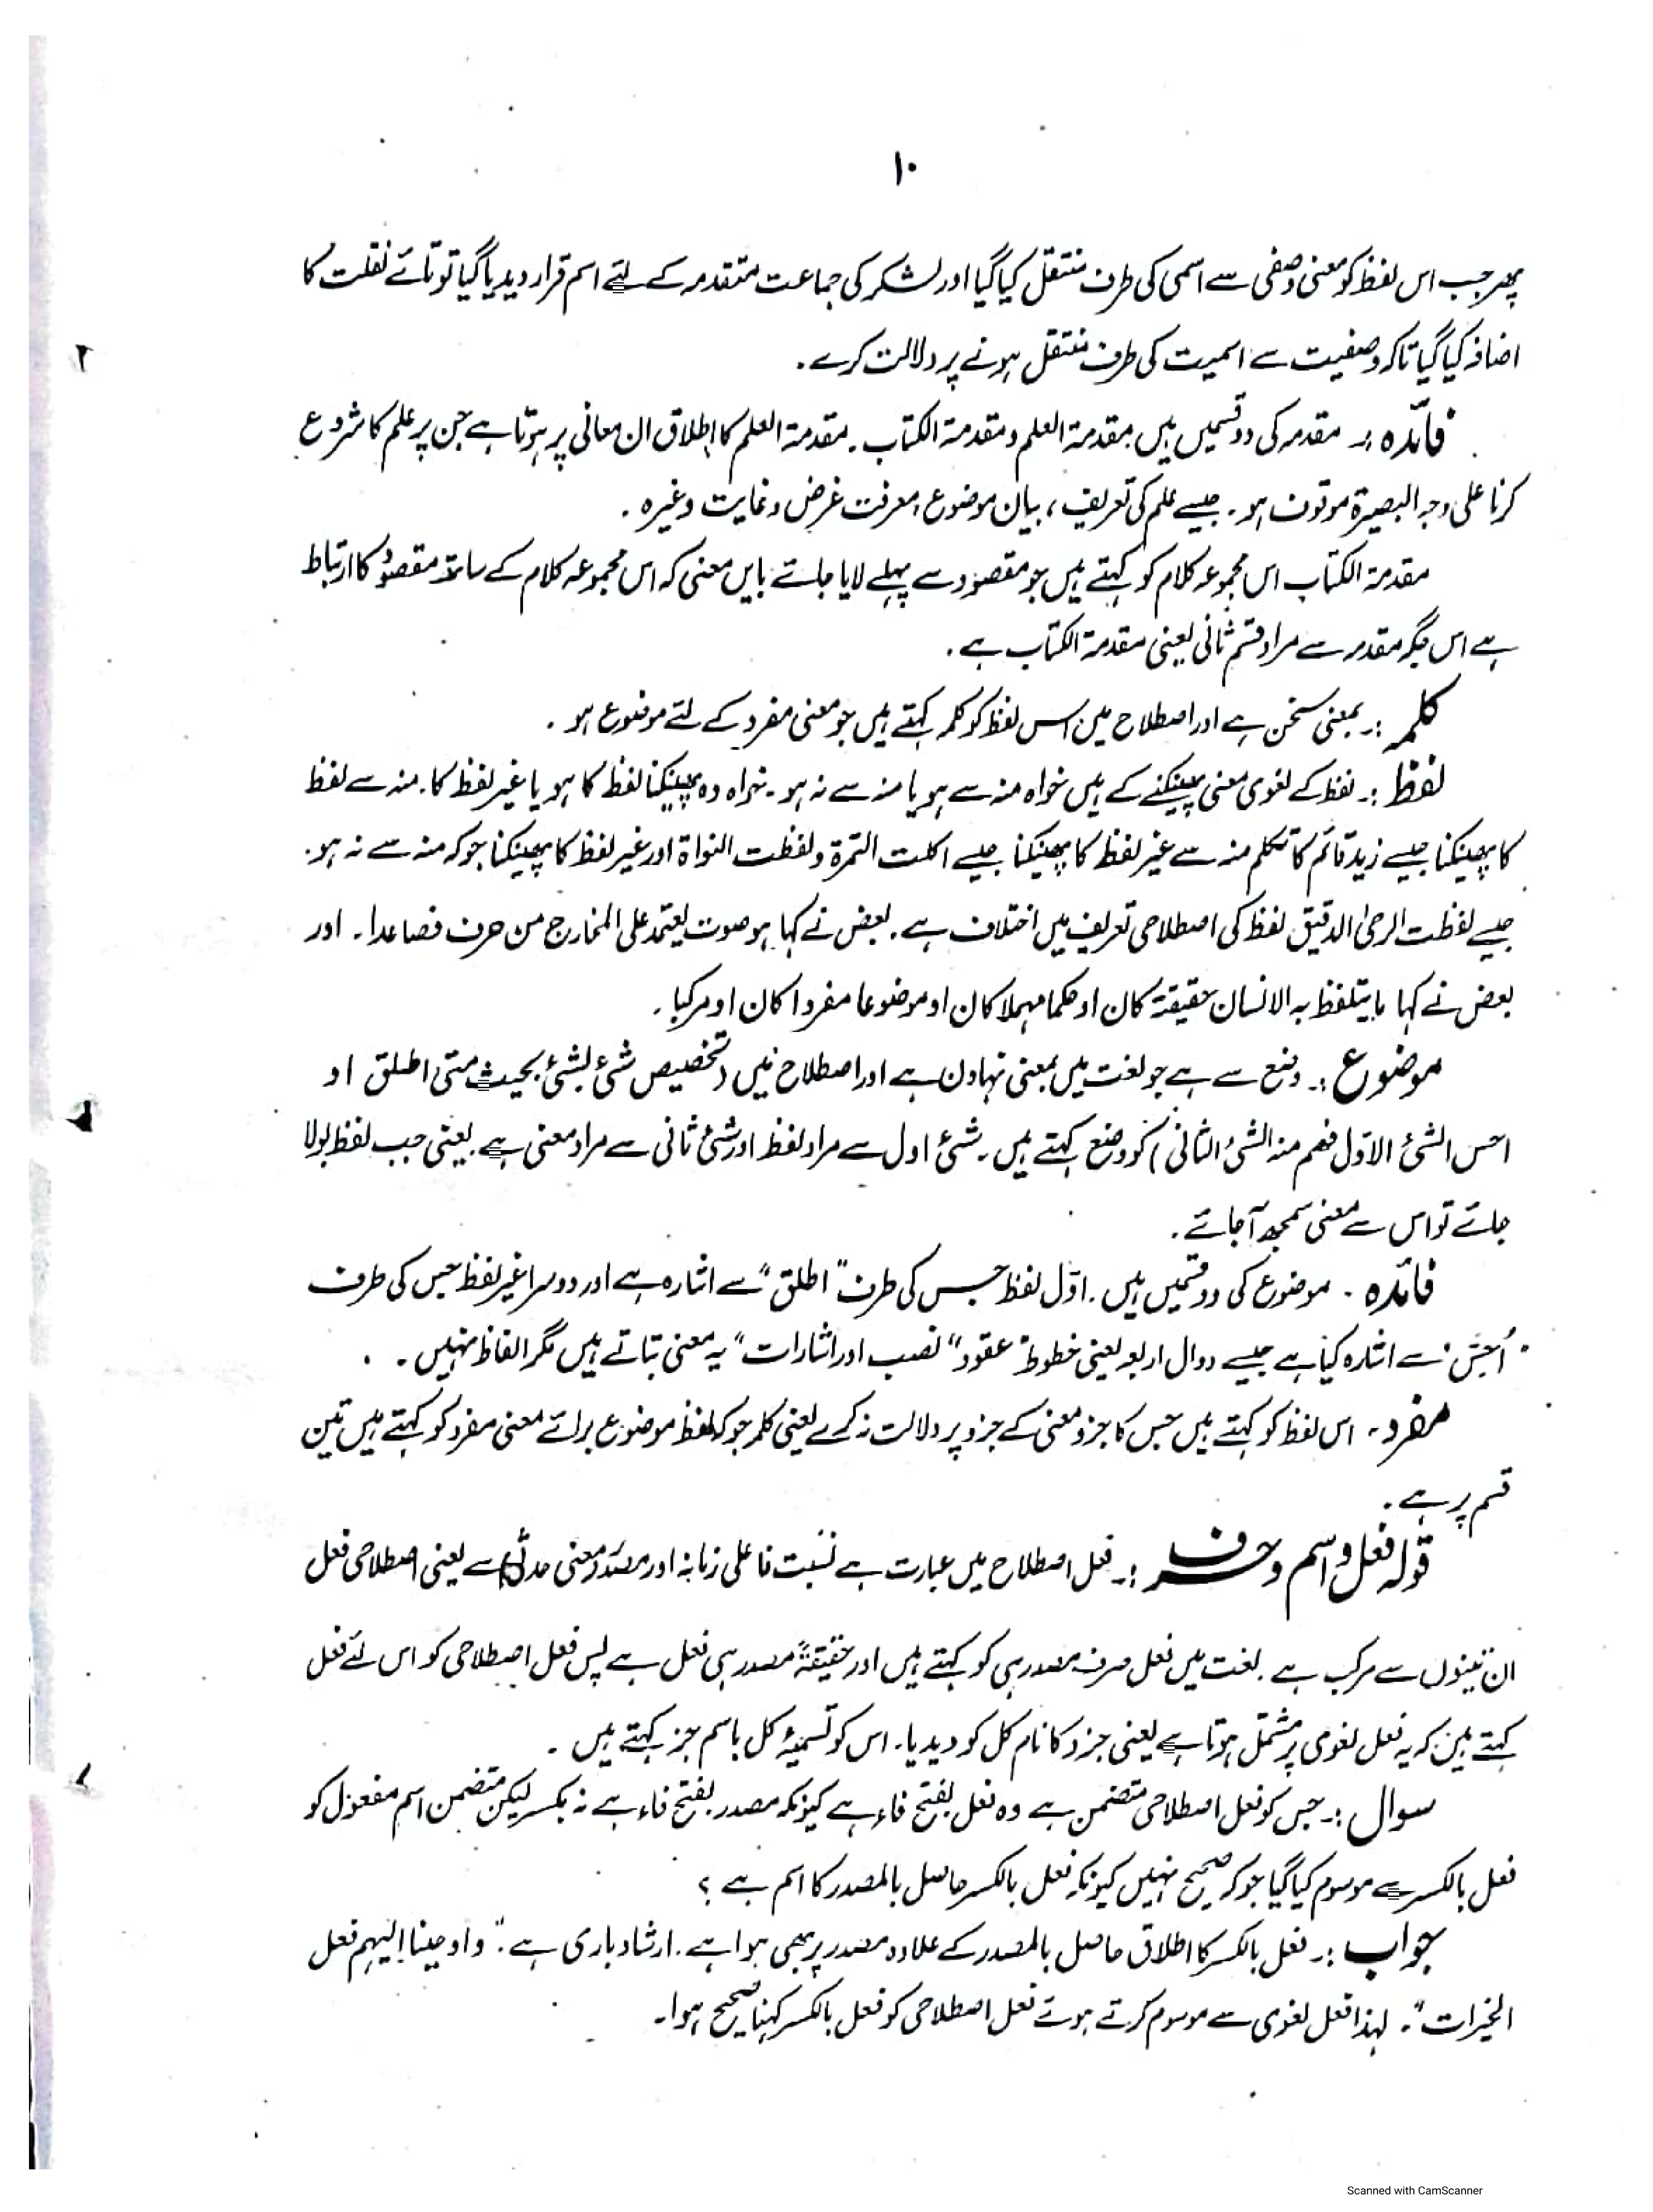 ۱۰
پھر جب اس لفظ کو معنی وصفی سے اسمی کی طرف منتقل کیا گیا اور لشکر کی جماعت متقدمہ کے لئے اسم قرار دیدیا گیا تو تائے نقلت کا
اضافہ کیا گیا تاکہ وصفیت سے اسمیت کی طرف منتقل ہونے پر دلالت کرے۔
فائدہ :۔ مقدمہ کی دو قسمیں ہیں۔ مقدمۃ العلم و مقدمۃ الکتاب۔ مقدمۃ العلم کا اطلاق ان معانی پر ہوتا ہے جن پر علم کا شروع
کرنا علی وجہ البصیرۃ موقوف ہو۔ جیسے علم کی تعریف، بیان موضوع، معرفت غرض و غایت وغیرہ۔
مقدمۃ الکتاب اس مجموعہ کلام کو کہتے ہیں جو مقصود سے پہلے لایا جاتے بایں معنی کہ اس مجموعہ کلام کے ساتھ مقصود کا ارتباط
ہے اس جگہ مقدمہ سے مراد قسم ثانی یعنی مقدمۃ الکتاب ہے۔
کلمہ :۔ بمعنی سخن ہے اور اصطلاح میں اس لفظ کو کلمہ کہتے ہیں جو معنی مفرد کے لئے موضوع ہو۔
لفظ :۔ لفظ کے لغوی معنی پھینکنے کے ہیں خواہ منہ سے ہو یا منہ سے نہ ہو۔ خواہ وہ پھینکنا لفظ کا ہو یا غیر لفظ کا۔ منہ سے لفظ
کا پھینکنا جیسے زید قائم کا تکلم منہ سے غیر لفظ کا پھینکنا جیسے اکلت التمرۃ ولفظت النواۃ اور غیر لفظ کا پھینکنا جو کہ منہ سے نہ ہو۔
جیسے لفظت الرحیٰ الدقیق لفظ کی اصطلاحی تعریف میں اختلاف ہے۔ بعض نے کہا ہو صوت یعتمد علی المخارج من حرف فصاعدا۔ اور
بعض نے کہا مایتلفظ بہ الانسان حقیقۃ کان او حکما مہملا کان او موضوعا مفردا کان او مرکبا۔
موضوع :۔ وضع سے ہے جو لغت میں بمعنی نہادن ہے اور اصطلاح میں (تخصیص شئ بشئ بحیث متی اطلق او
احس الشئ الاوّل فہم منہ الشئ الثانی) کو وضع کہتے ہیں۔ شئ اول سے مراد لفظ اور شئ ثانی سے مراد معنی ہے۔ یعنی جب لفظ بولا
جائے تو اس سے معنی سمجھ آجائے۔
فائدہ ۔ موضوع کی دو قسمیں ہیں۔ اوّل لفظ جس کی طرف "اطلق" سے اشارہ ہے اور دوسرا غیر لفظ جس کی طرف
"اُحِسَّ" سے اشارہ کیا ہے جیسے دوال اربعہ یعنی خطوط عقود "نصب اور اشارات" یہ معنی بتاتے ہیں مگر الفاظ نہیں۔
مفرد۔ اس لفظ کو کہتے ہیں جس کا جزو معنی کے جزو پر دلالت نہ کرے یعنی کلمہ جو کہ لفظ موضوع برائے معنی مفرد کو کہتے ہیں تین
قسم پر ہے۔
قولہ فعل و اسم و حرف :۔ فعل اصطلاح میں عبارت ہے نسبت فاعلی زمانہ اور مصدر و معنی حدثی سے یعنی اصطلاحی فعل
ان تینوں سے مرکب ہے۔ لغت میں فعل صرف مصدر ہی کو کہتے ہیں اور حقیقۃً مصدر ہی فعل ہے پس فعل اصطلاحی کو اس لئے فعل
کہتے ہیں کہ یہ فعل لغوی پر مشتمل ہوتا ہے یعنی جزو کا نام کل کو دیدیا۔ اس کو تسمیۂ کل باسم جز کہتے ہیں۔
سوال :۔ جس کو فعل اصطلاحی متضمن ہے وہ فعل بفتح فاء ہے کیونکہ مصدر بفتح فاء ہے نہ بکسر لیکن متضمن اسم مفعول کو
فعل بالکسر سے موسوم کیا گیا جو کہ صحیح نہیں کیونکہ فعل بالکسر حاصل بالمصدر کا اسم ہے ؟
جواب :۔ فعل بالکسر کا اطلاق حاصل بالمصدر کے علاوہ مصدر پر بھی ہوا ہے۔ ارشاد باری ہے۔ "واوحینا الیہم فعل
الخیرات"۔ لہذا فعل لغوی سے موسوم کرتے ہوئے فعل اصطلاحی کو فعل بالکسر کہنا صحیح ہوا۔
Scanned with CamScanner